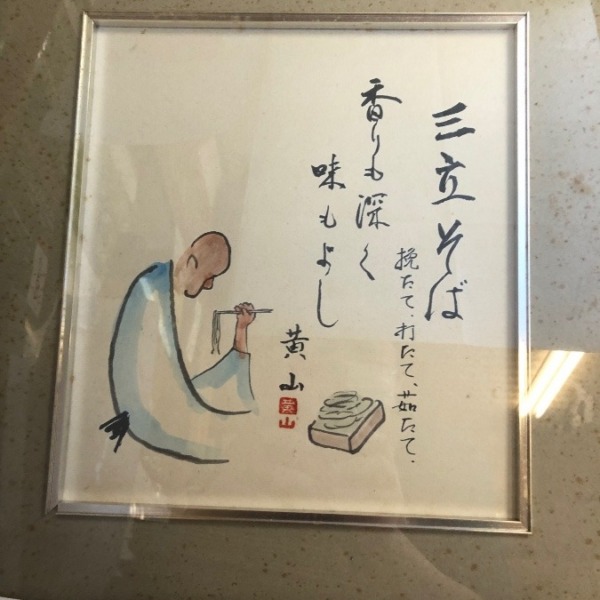 三立そば
挽たて、打たて、茹たて、
香りも深く
味もよし
黄山
黄山